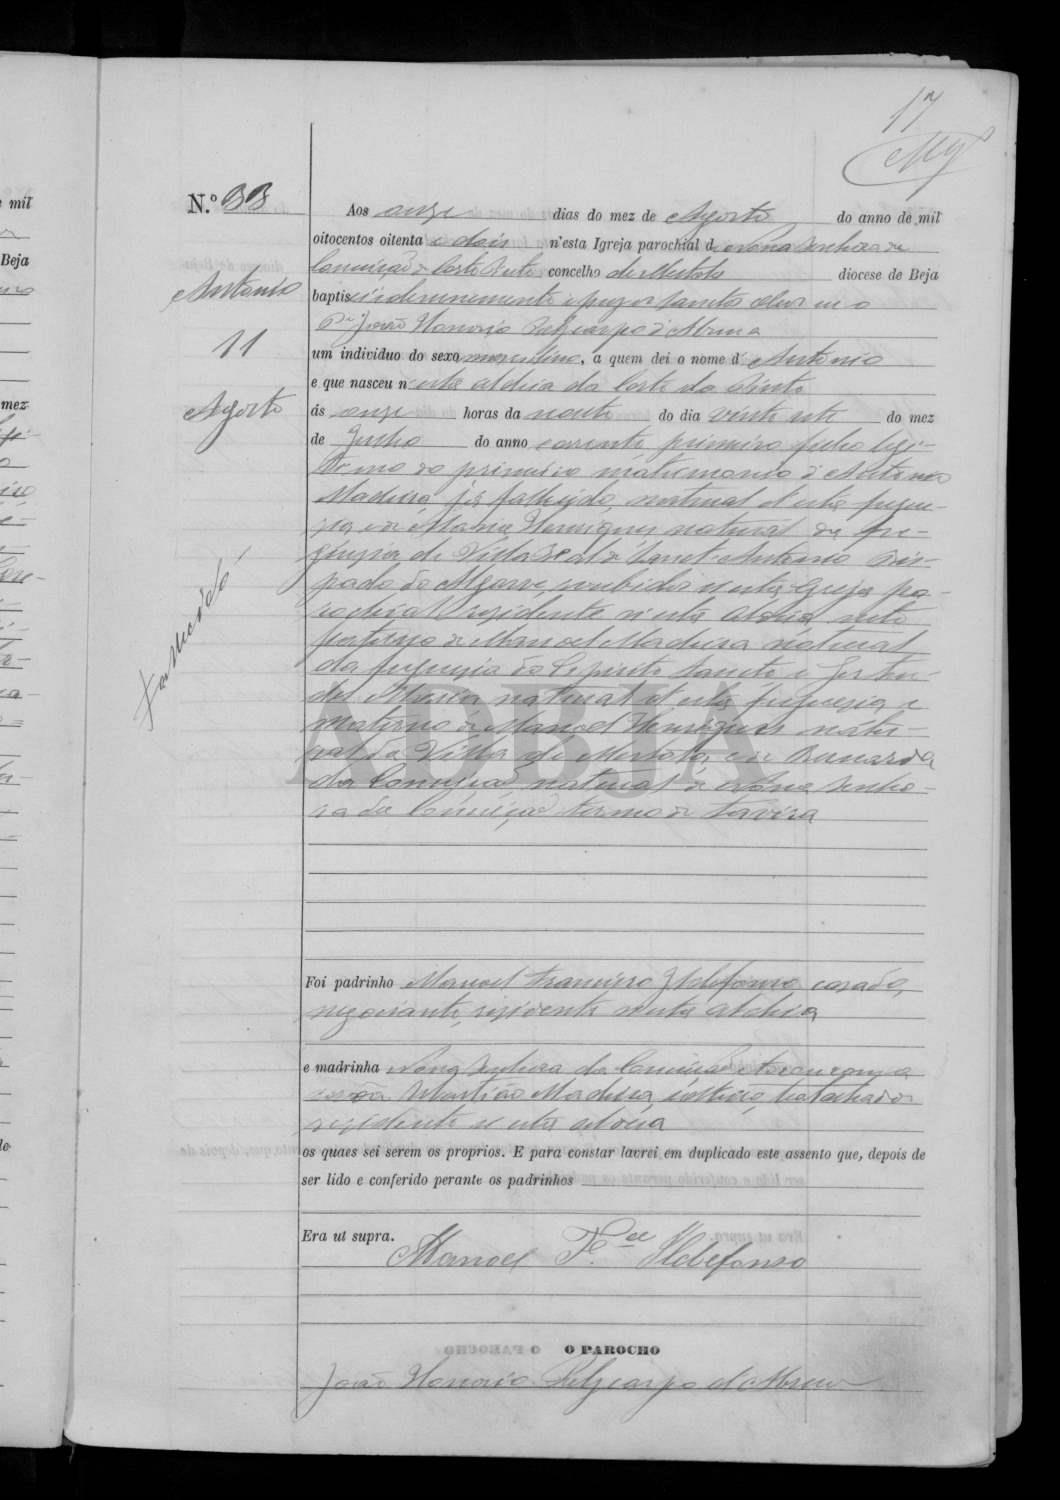 17
N.º 33
Aos onze dias do mez de Agosto do anno de mil
oitocentos oitenta e dois n'esta Igreja parochial de Nossa Senhora da
Conceição de Corte do Pinto concelho de Mertola diocese de Beja
Antonio
baptisei solemnemente e puz os Santos Oleos eu o
P.e João Honorio Policarpo d'Abreu
11
um individuo do sexo masculino, a quem dei o nome d' Antonio
e que nasceu n'esta aldeia da Corte do Pinto
Agosto
ás onze horas da noute do dia vinte sete do mez
de Junho do anno corrente primeiro filho legi-
timo do primeiro matrimonio d'Antonio
Madeira já fallecido, natural d'esta fregue-
sia e de Maria Henriques natural da fre-
guesia de Villa Real de Santo Antonio Bis-
pado do Algarve, recebidos n'esta Igreja pa-
rochial residente n'esta aldeia neto
paterno de Manoel Madeira natural
da freguesia do Espirito Santo e Gertru-
des Maria natural d'esta freguesia e
materno de Manoel Henriques natu-
ral da Villa de Mertola, e de Bernarda
da Conceição natural de Nossa Senho-
ra da Conceição termo de Tavira
Falleceo
ADBJA
Foi padrinho Manoel Francisco Ildefonso casado,
negociante, residente n'esta aldeia
e madrinha Nossa Senhora da Conceição e tocou com a
corôa Martião Madeira, solteiro, trabalhador
residente n'esta aldeia
os quaes sei serem os proprios. E para constar lavrei em duplicado este assento que, depois de
ser lido e conferido perante os padrinhos
Era ut supra.
Manoel F.co Ildefonso
O PAROCHO
João Honorio Policarpo d'Abreu
mil
Beja
mez